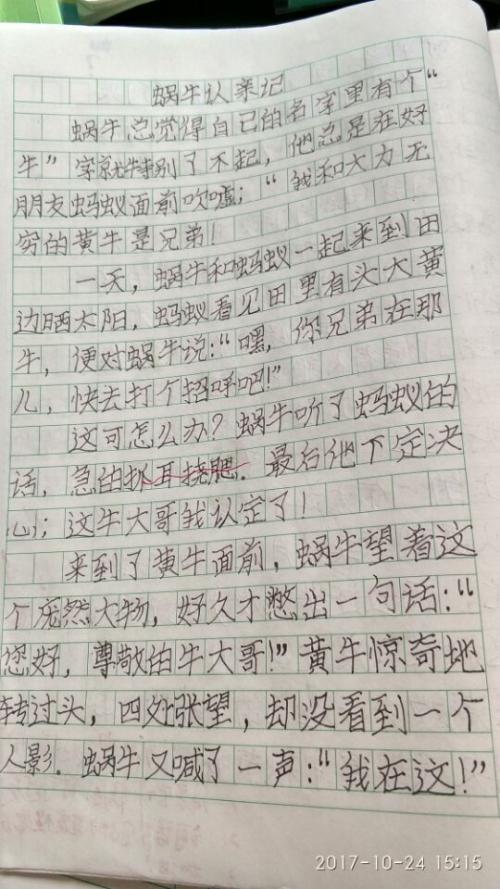 蜗牛认亲记
蜗牛总觉得自己的名字里有个“
牛”字就特别了不起，他总是在好
朋友蚂蚁面前吹嘘；“我和大力无
穷的黄牛是兄弟！
一天，蜗牛和蚂蚁一起来到田
边晒太阳，蚂蚁看见田里有头大黄
牛，便对蜗牛说：“嘿，你兄弟在那
儿，快去打个招呼吧！”
这可怎么办？蜗牛听了蚂蚁的
话，急的抓耳挠腮．最后他下定决
心；这牛大哥我认定了！
来到了黄牛面前，蜗牛望着这
个庞然大物，好久才憋出一句话：“
您好，尊敬的牛大哥！”黄牛惊奇地
转过头，四处张望，却没看到一个
人影．蜗牛又喊了一声：“我在这！”
2017-10-24 15:15